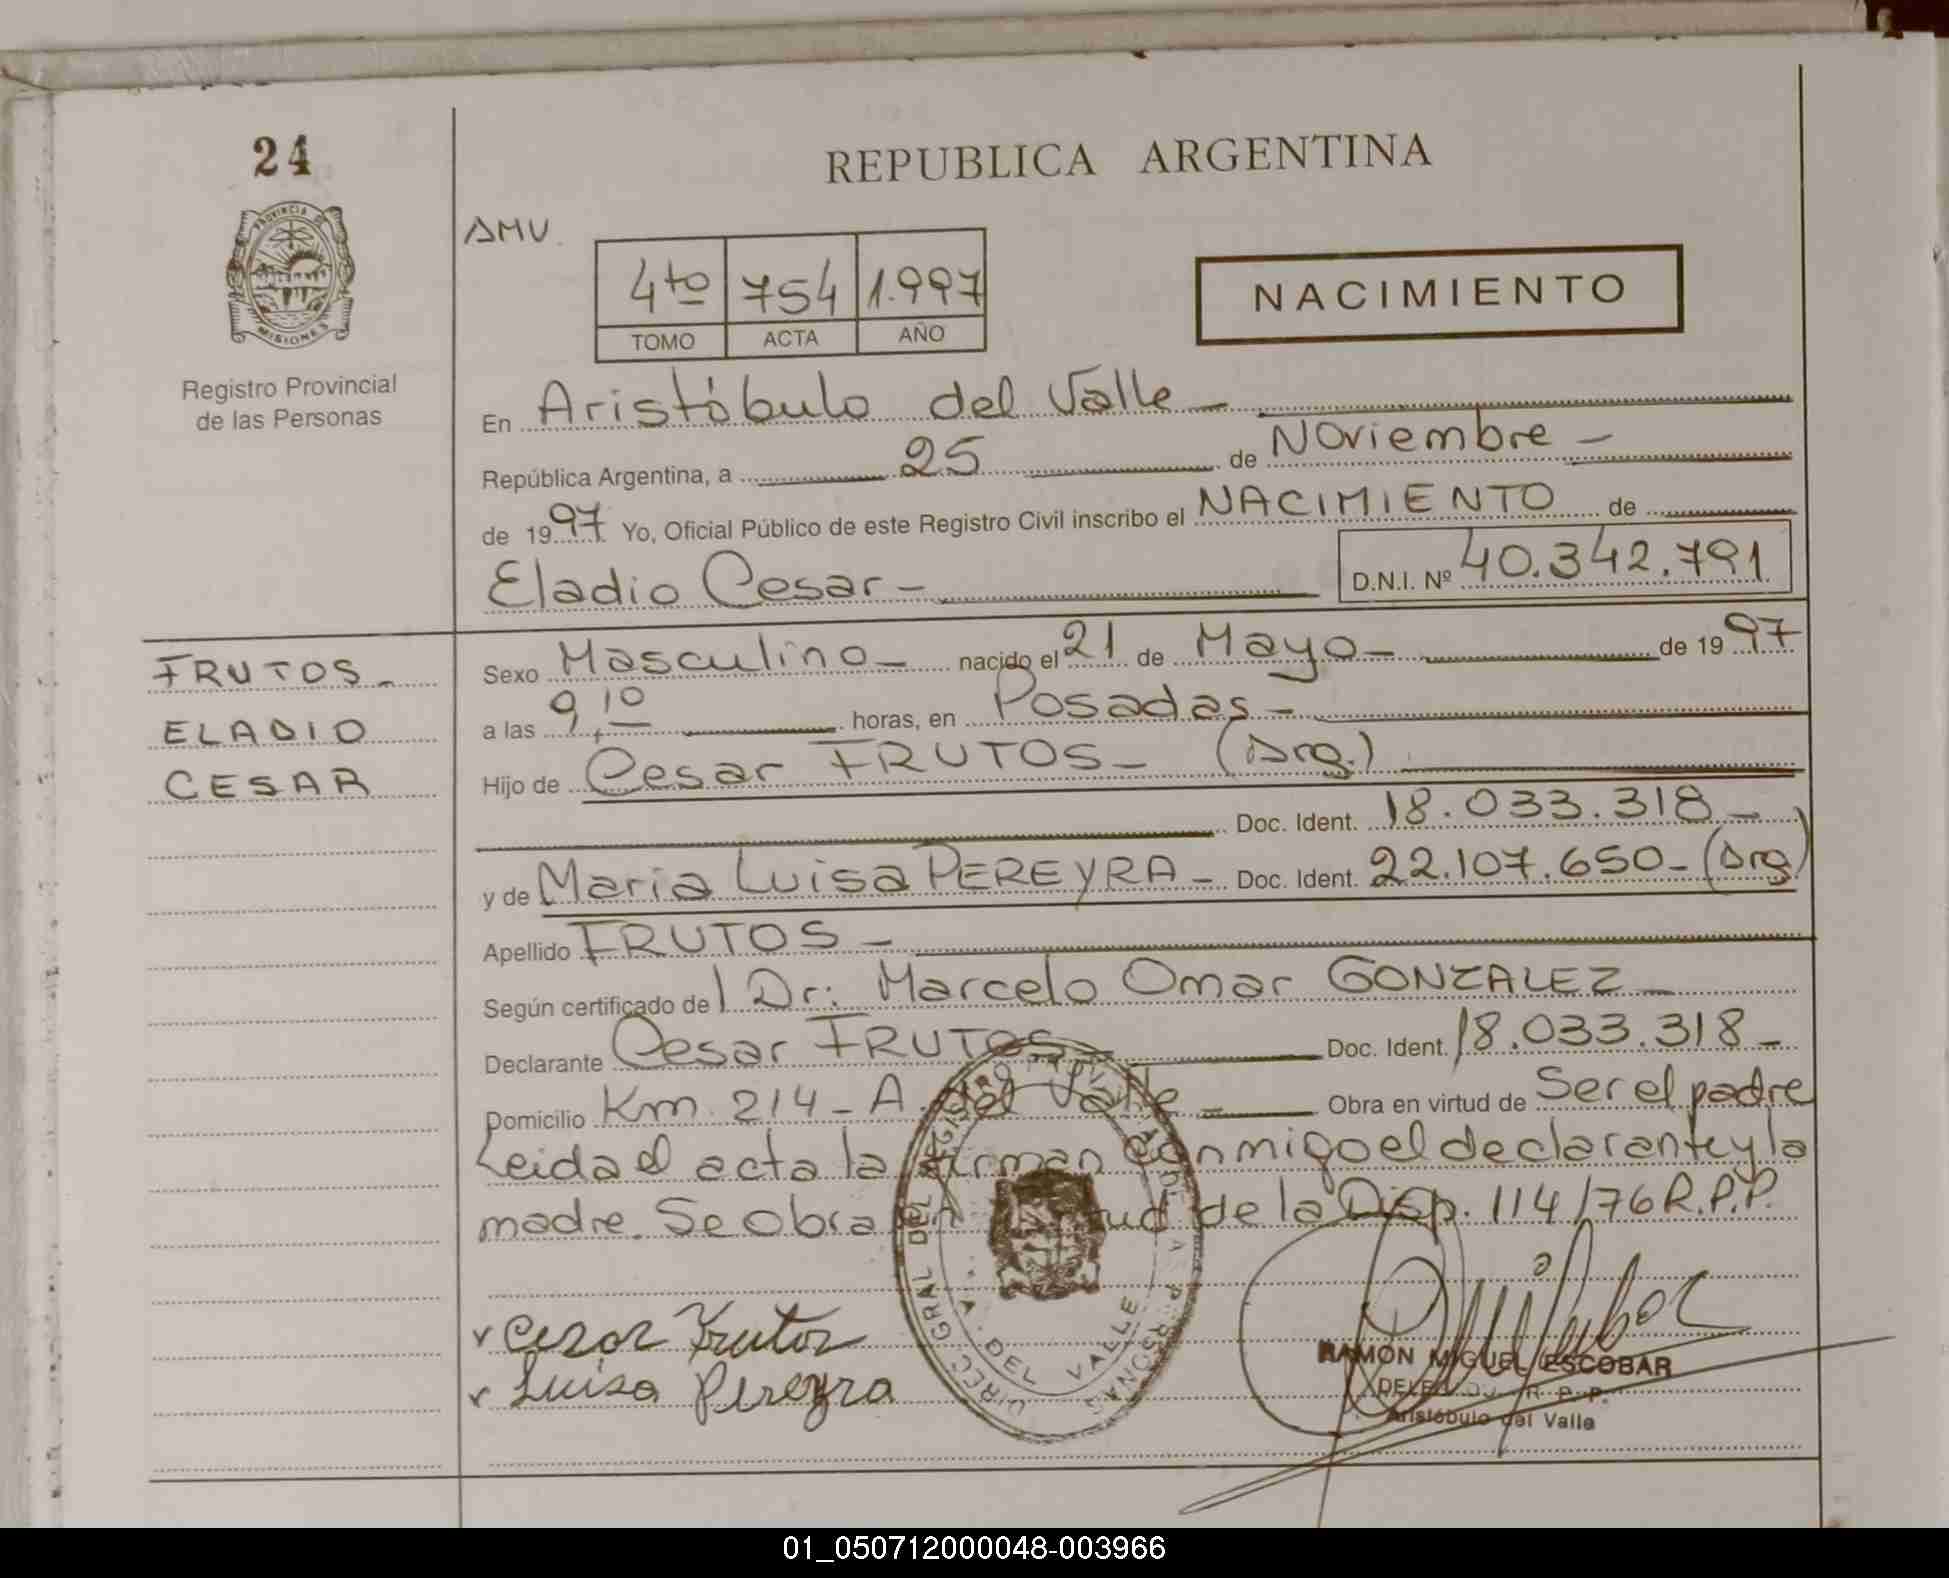 24
REPUBLICA ARGENTINA
PROVINCIA DE
MISIONES
Registro Provincial
de las Personas
AMV.
4to 754 1.997
TOMO ACTA AÑO
NACIMIENTO
En Aristóbulo del Valle -
República Argentina, a 25 de Noviembre -
de 1997 Yo, Oficial Público de este Registro Civil inscribo el NACIMIENTO de
Eladio Cesar - D.N.I. Nº 40.342.791
FRUTOS -
ELADIO
CESAR
Sexo Masculino - nacido el 21 de Mayo - de 1997
a las 9,10 horas, en Posadas -
Hijo de Cesar FRUTOS - (Arg.)
Doc. Ident. 18.033.318 -
y de Maria Luisa PEREYRA - Doc. Ident. 22.107.650 - (Arg)
Apellido FRUTOS -
Según certificado de Dr: Marcelo Omar GONZALEZ -
Declarante Cesar FRUTOS - Doc. Ident. 18.033.318 -
Domicilio Km 214 - A. del Valle - Obra en virtud de Ser el padre
Leida el acta la firman conmigo el declarante y la
madre. Se obra en virtud de la Disp. 114/76 R.P.P.
Cesar Frutos
Luisa Pereyra
GRAL DEL REGISTRO
A. DEL VALLE
RAMON MIGUEL ESCOBAR
R. P. P.
Aristóbulo del Valle
01_050712000048-003966